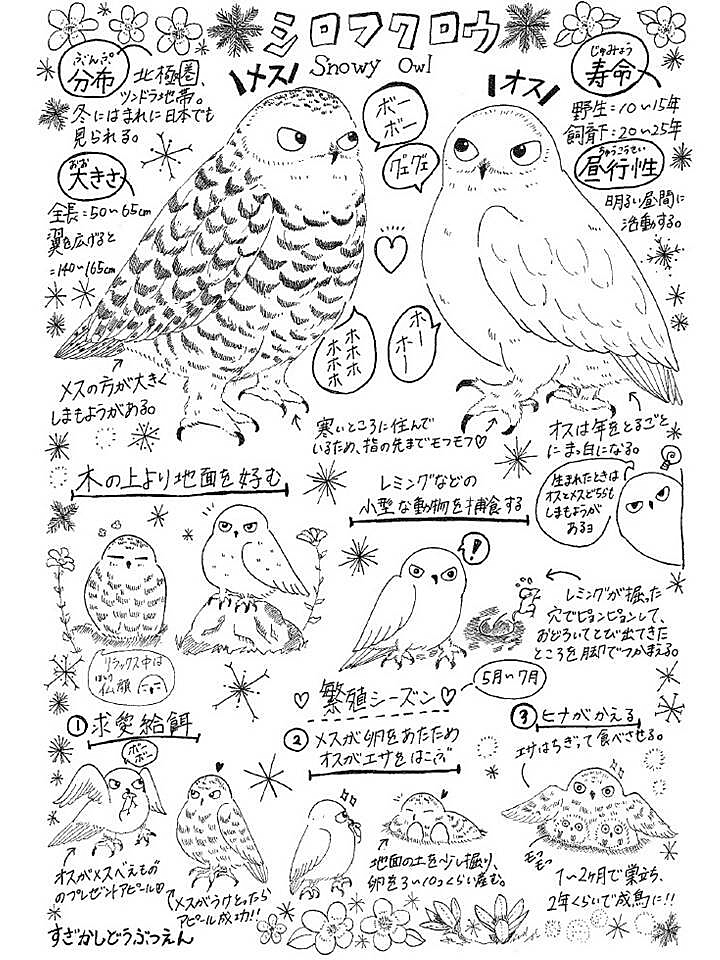 シロフクロウ
Snowy Owl
ぶんぷ
分布
北極圏、
ツンドラ地帯。
冬にはまれに日本でも
見られる。
おお
大きさ
全長=50~65cm
翼を広げると
=140~165cm
メス
オス
ボー
ボー
グェグェ
ホホホ
ホホホ
ホー
ホー
じゅみょう
寿命
野生=10~15年
飼育下=20~25年
ちゅうこうせい
昼行性
明るい昼間に
活動する。
メスの方が大きく
しまもようがある。
寒いところに住んで
いるため、指の先までモフモフ♡
オスは年をとるごと
にまっ白になる。
生まれたときは
オスとメスどちらも
しまもようが
あるヨ
木の上より地面を好む
リラックス中は
仏顔
レミングなどの
小型な動物を捕食する
!
レミングが掘った
穴でピョンピョンして、
おどろいてとび出てきた
ところを脚でつかまえる。
♡繁殖シーズン♡
5月~7月
① 求愛給餌
ボーボー
オスがメスへえもの
のプレゼントアピール♡
メスがうけとったら
アピール成功!!
② メスが卵をあたため
オスがエサをはこぶ
地面の土を少し掘り、
卵を3~10コくらい産む。
③ ヒナがかえる
エサはちぎって食べさせる。
モフモフ
1~2ヶ月で巣立ち、
2年くらいで成鳥に!!
すざかしどうぶつえん